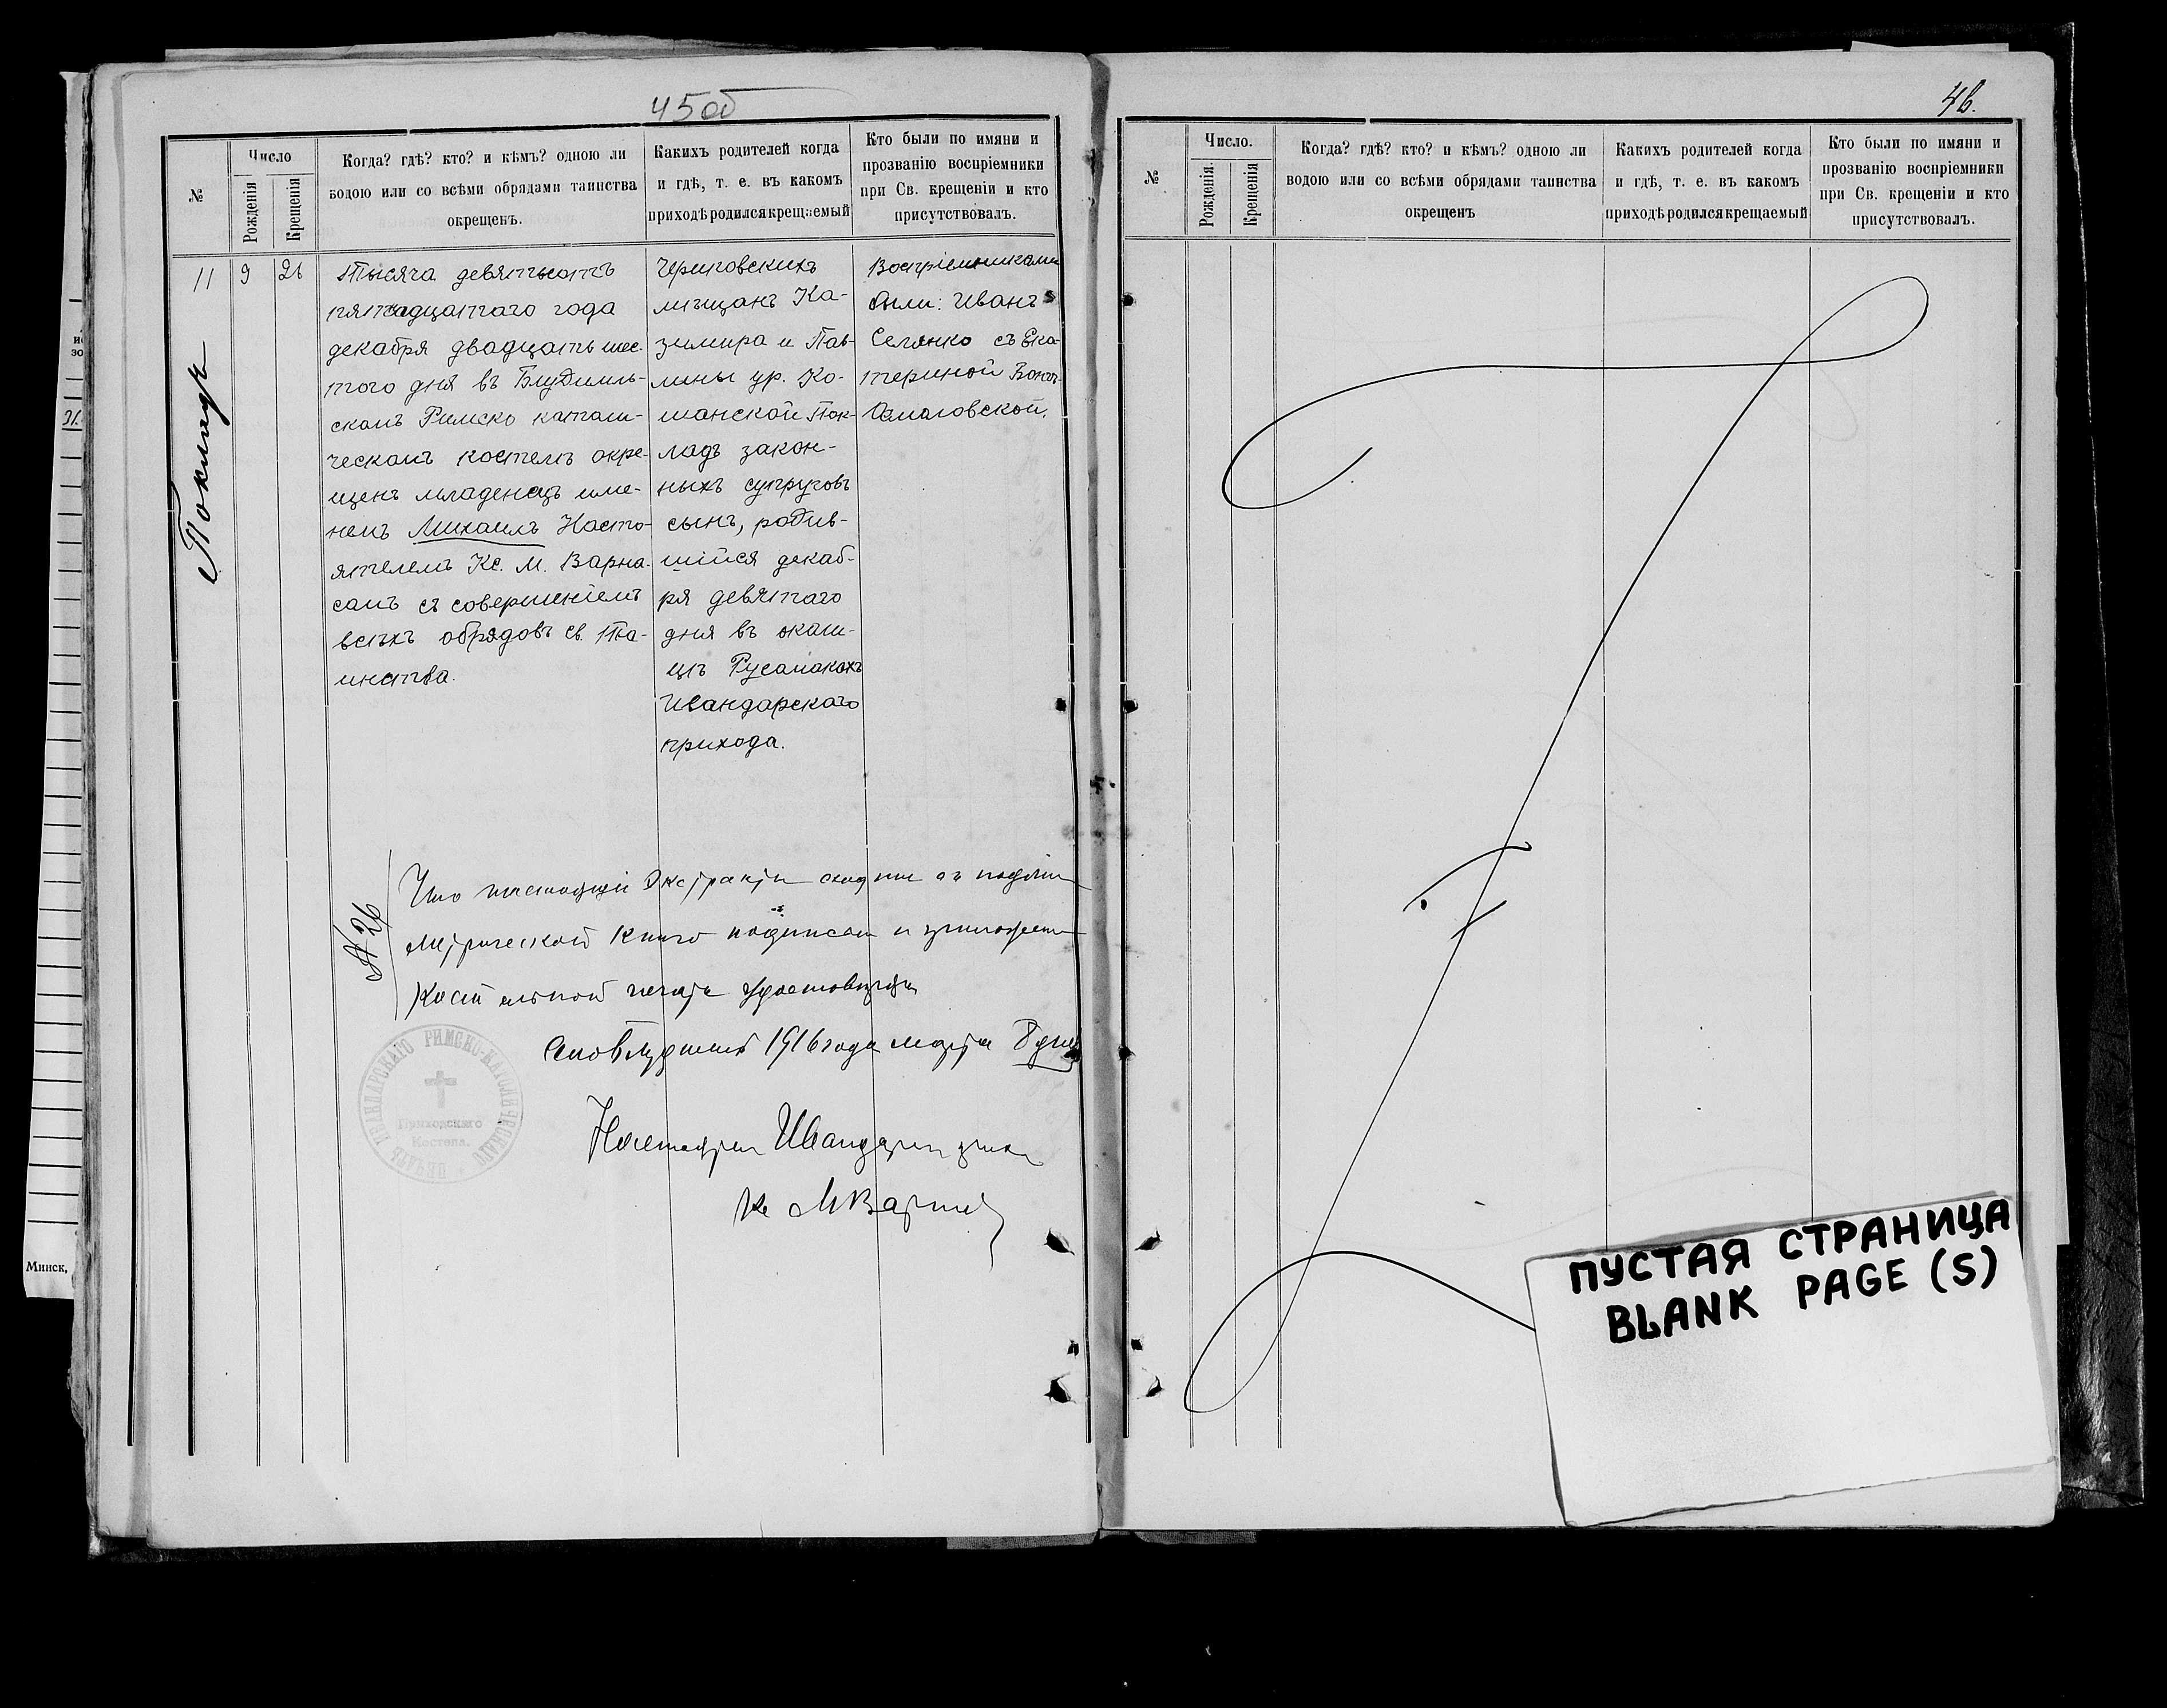 45об
№
Число
Рожденія
Крещенія
Когда? гдѣ? кто? и кѣмъ? одною ли
водою или со всѣми обрядами таинства
окрещенъ.
Какихъ родителей когда
и гдѣ, т. е. въ какомъ
приходѣ родился крещаемый
Кто были по имяни и
прозванію воспріемники
при Св. крещеніи и кто
присутствовалъ.
11
9
26
Тысяча девятьсотъ
пятнадцатаго года
декабря двадцать шес-
того дня въ
скомъ Римско катали-
ческомъ костелѣ окре-
щенъ младенецъ име-
немъ Михаилъ Насто-
ятелемъ Кс. М. Варна-
сомъ съ совершеніемъ
всѣхъ обрядовъ св. Та-
инства.
Чериковскихъ
мѣщанъ Ка-
зимира и Пав-
лины ур. Ко-
шанской Пок-
ладъ закон-
ныхъ супруговъ
сынъ, родив-
шійся декаб-
ря девятаго
дня въ окали-
цѣ
Ивандарскаго
прихода.
Воспріемниками
были: Иванъ
Селянко съ Ека-
териной
Покладъ
№ 26
Что настоящій Экстрактъ сходенъ съ подлин
Метрической книго подписом и приложени
Костельной печати удостовѣряю
1916 года марта 8 дня
Настоятель Ивандарск
Кс М Варнас
ПЕЧАТЬ ИВАНДАРСКАГО РИМСКО-КАТОЛИЧЕСКАГО
Приходскаго
Костела.
Минск,
46.
№
Число.
Рожденія.
Крещенія
Когда? гдѣ? кто? и кѣмъ? одною ли
водою или со всѣми обрядами таинства
окрещенъ
Какихъ родителей когда
и гдѣ, т. е. въ какомъ
приходѣ родился крещаемый
Кто были по имяни и
прозванію воспріемники
при Св. крещеніи и кто
присутствовалъ.
ПУСТАЯ СТРАНИЦА
BLANK PAGE (S)